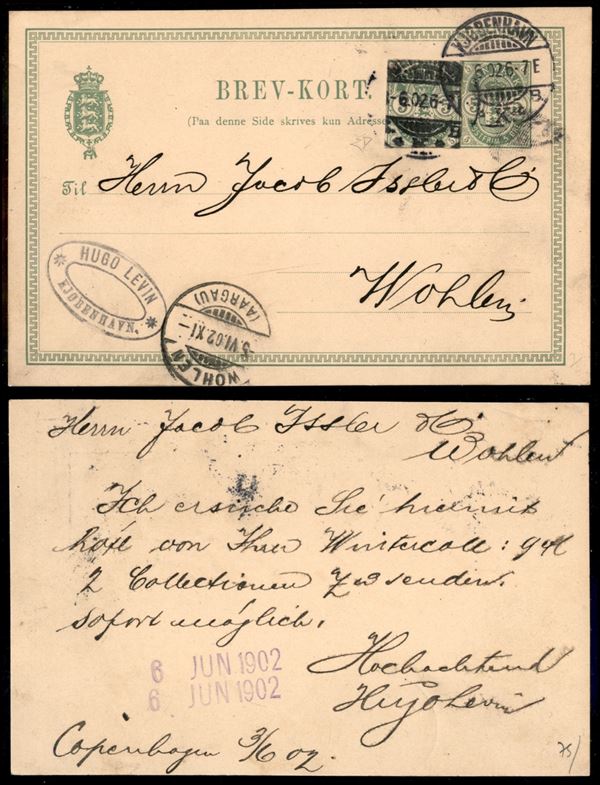 BREV-KORT.
(Paa denne Side skrives kun Adresse
KJØBENHAVN
6.02.6-7 E
B.
Til Herrn Jacob Issler & Co
Wohlen
HUGO LEVIN
KJØBENHAVN.
(AARGAU)
5.VI.02.XI-
WOHLEN
Herrn Jacob Issler & Co
Wohlen
Ich ersuche Sie hiermit
von Ihrer Wintercoll:
2 Collectionen zu senden
sofort möglich.
6 JUN 1902
6 JUN 1902
Hochachtend
Hugo Levin
Copenhagen 3/6 02.
75/